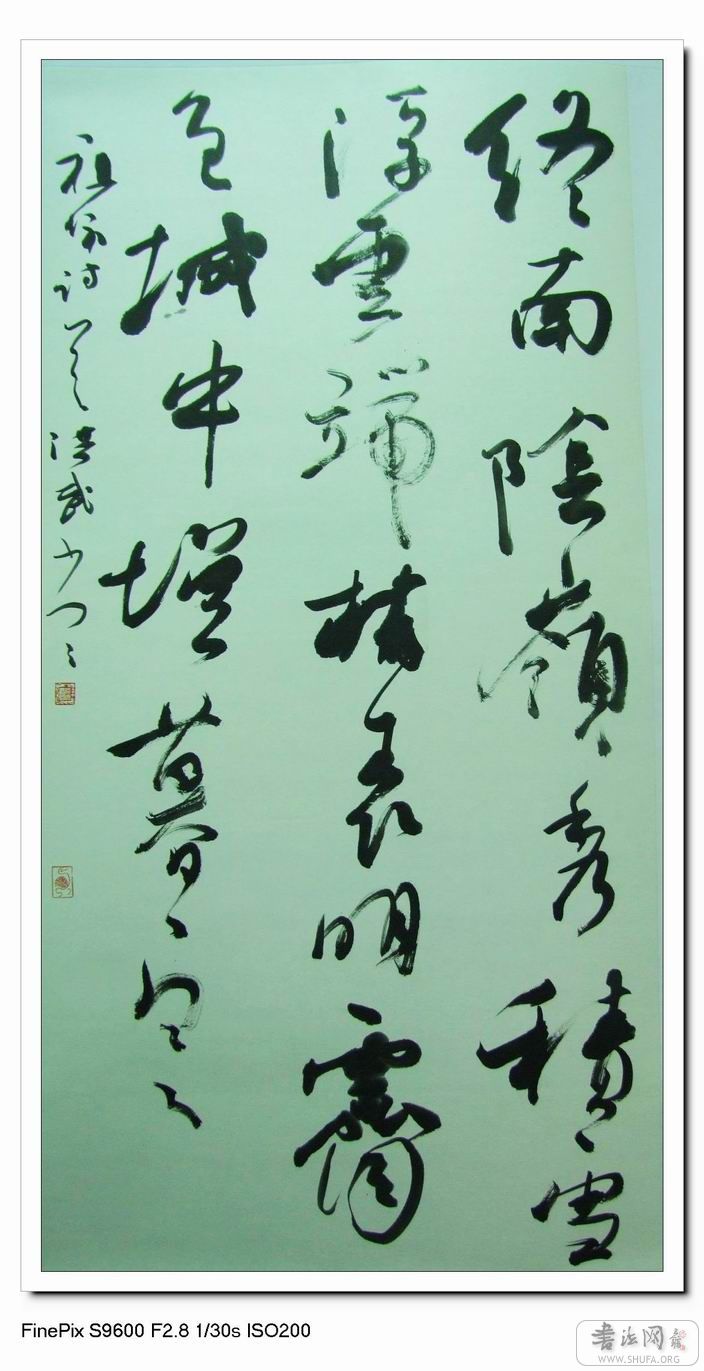 終南陰嶺秀積雪
浮雲端林表明霽
色城中增暮寒
祖詠诗 洪武
FinePix S9600 F2.8 1/30s ISO200
書法网
WWW.SHUFA.ORG